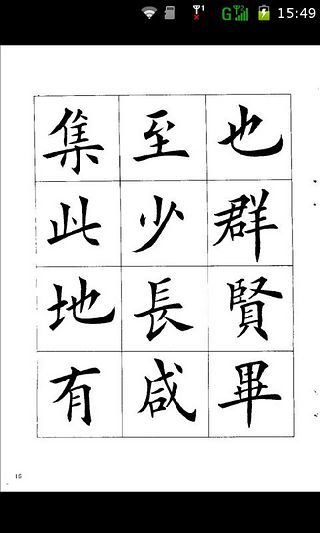 15:49
也群賢畢
至少長咸
集此地有
16